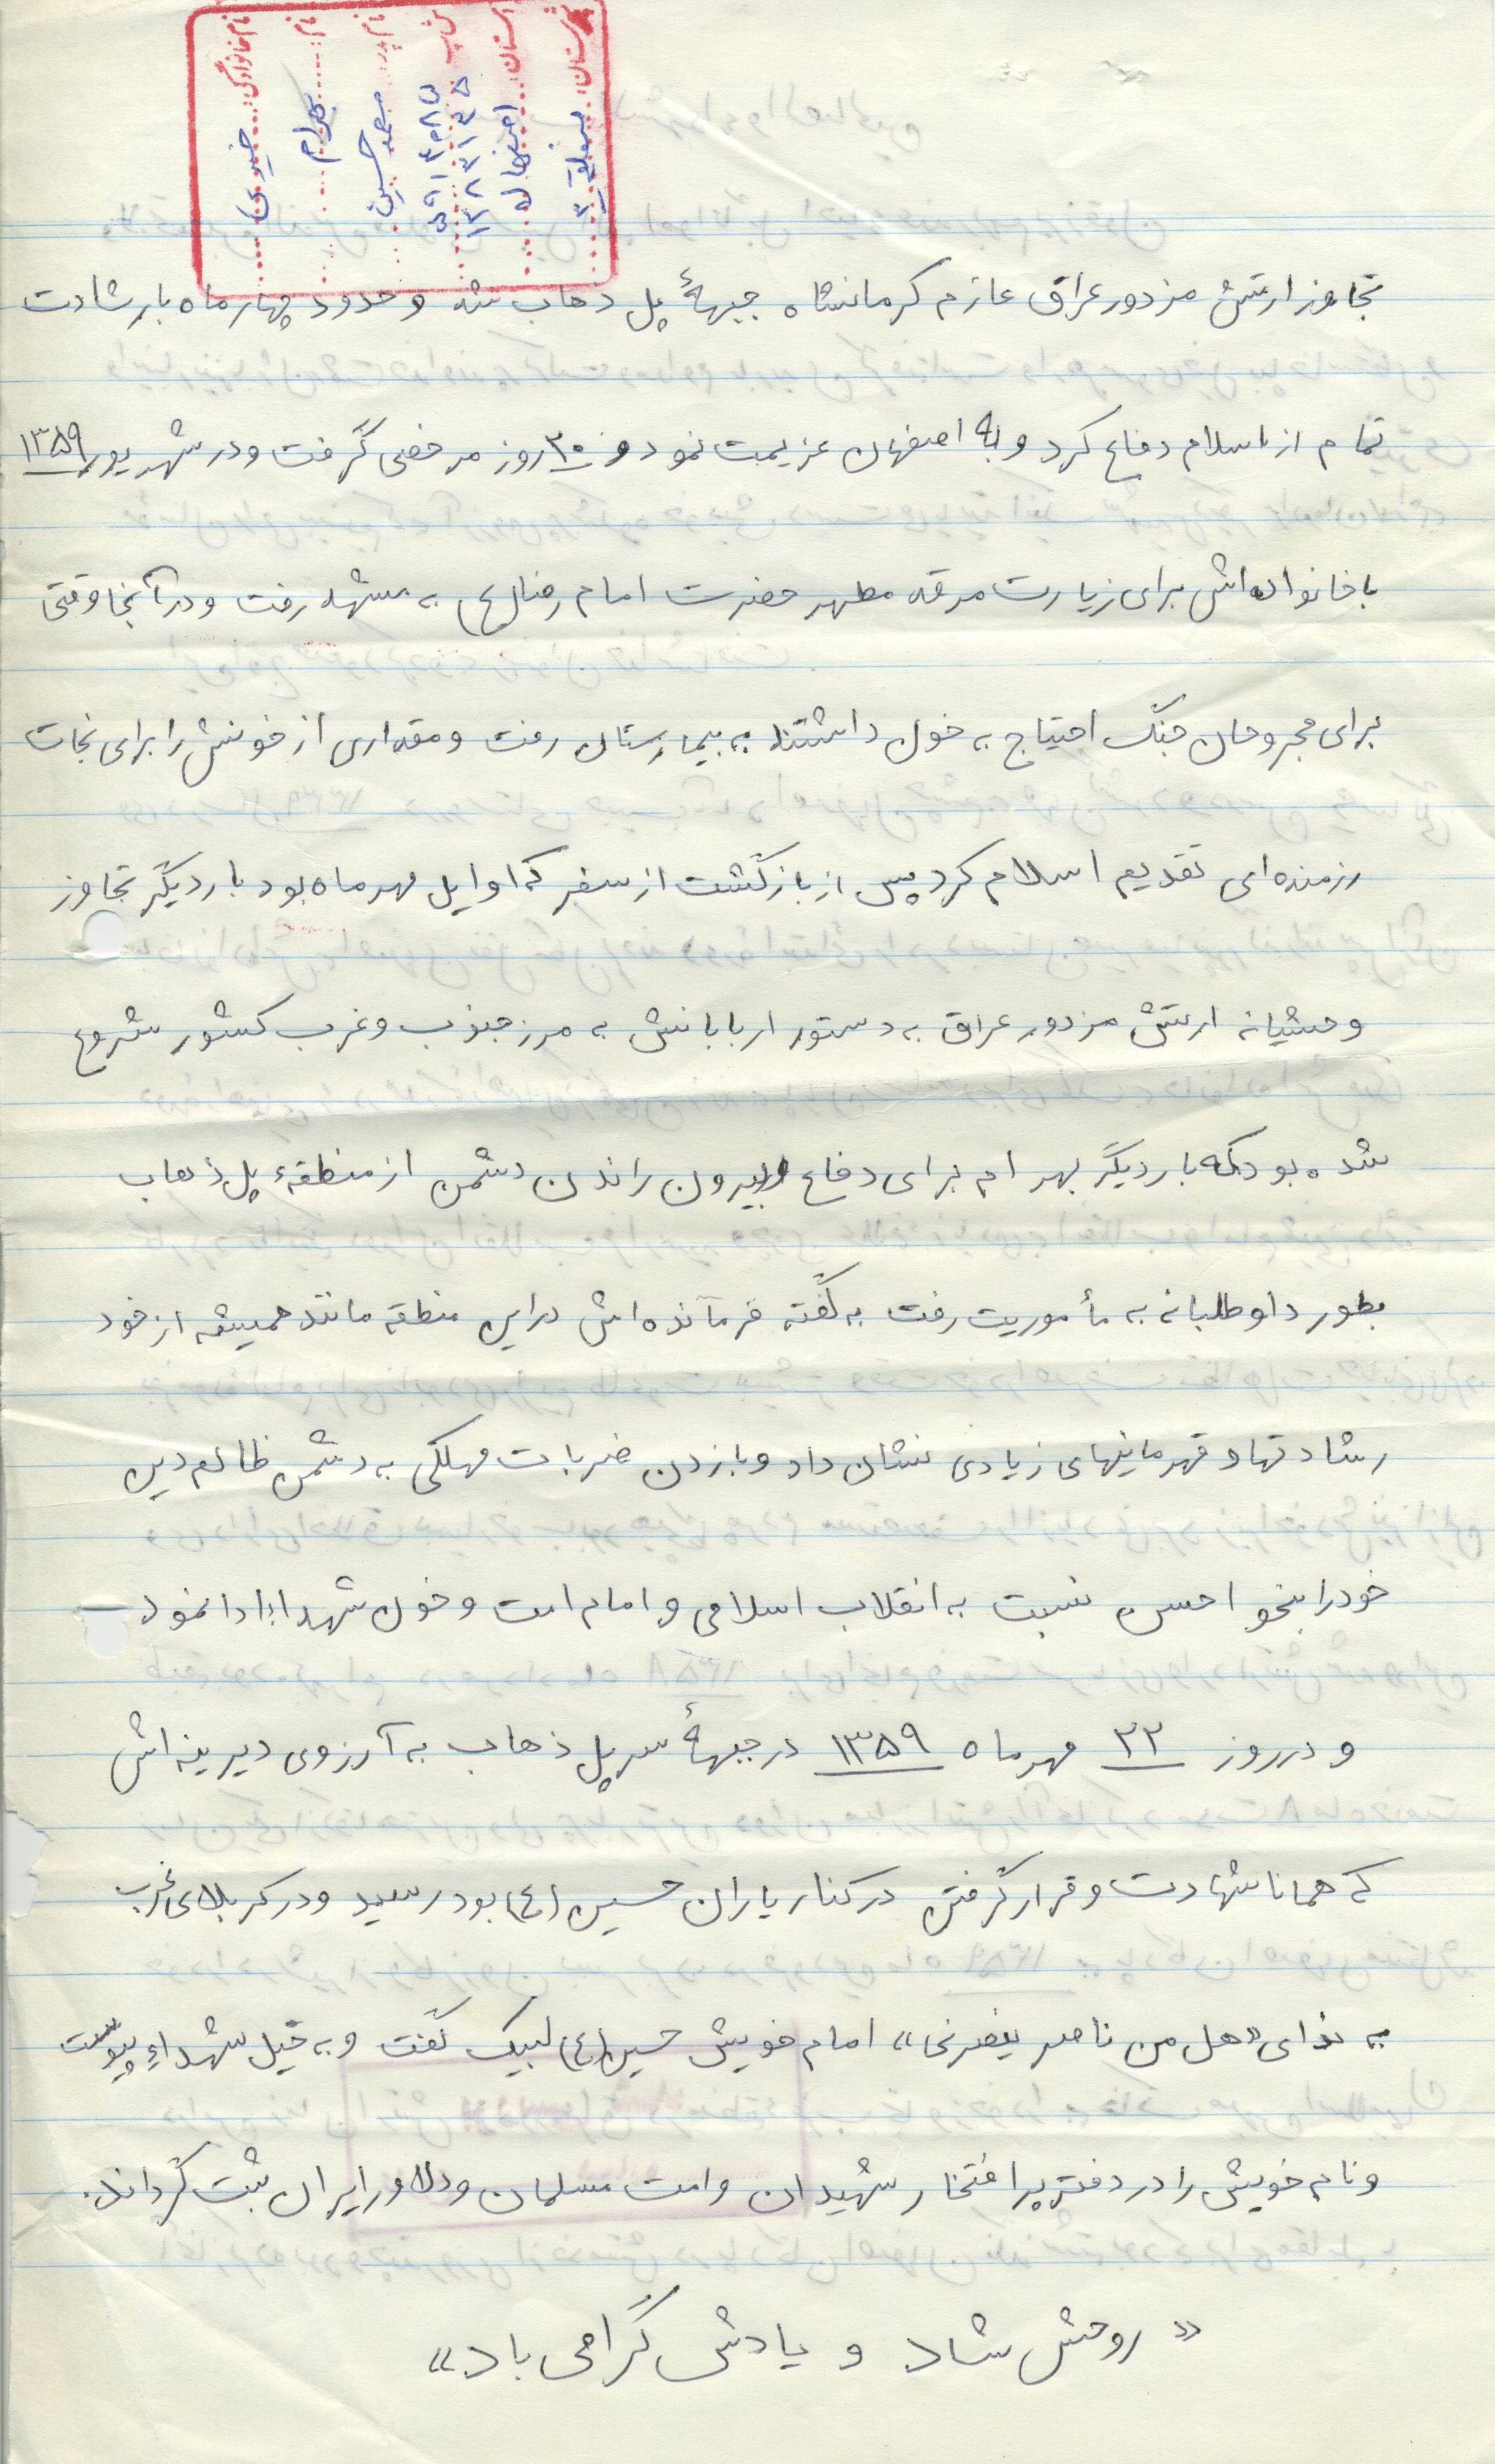 نام خانوادگی:
نام: بهرام
نام پدر: محمد حسین
استان: اصفهان
شهرستان:
تجاوز ارتش مزدور عراق عازم کرمانشاه جبههٔ پل ذهاب شد و حدود چهار ماه با رشادت
تمام از اسلام دفاع کرد و به اصفهان عزیمت نمود و ۲۰ روز مرخصی گرفت و در شهریور ۱۳۵۹
با خانواده‌اش برای زیارت مرقد مطهر حضرت امام رضا (ع) به مشهد رفت و در آنجا وقتی
برای مجروحان جنگ احتیاج به خون داشتند به بیمارستان رفت و مقداری از خونش را برای نجات
رزمنده‌ای تقدیم اسلام کرد پس از بازگشت از سفر که اوایل مهر ماه بود بار دیگر تجاوز
وحشیانه ارتش مزدور عراق به دستور اربابانش به مرز جنوب و غرب کشور شروع
شده بود که بار دیگر بهرام برای دفاع و بیرون راندن دشمن از منطقهٔ پل ذهاب
بطور داوطلبانه به مأموریت رفت به گفته فرمآنده‌اش در این منطقه مانند همیشه از خود
رشادتها و قهرمانیهای زیادی نشان داد و با زدن ضربات مهلکی به دشمن ظالم دین
خود را بنحو احسن نسبت به انقلاب اسلامی و امام امت و خون شهداء ادا نمود
و در روز ۲۲ مهر ماه ۱۳۵۹ در جبههٔ سر پل ذهاب به آرزوی دیرینه‌اش
که همانا شهادت و قرار گرفتن در کنار یاران حسین (ع) بود رسید و در کربلای غرب
به ندای «هل من ناصر ینصرنی» امام خویش حسین (ع) لبیک گفت و به خیل شهداء پیوست
و نام خویش را در دفتر پر افتخار شهیدان و امت مسلمان و دلاور ایران ثبت گرداند.
«روحش شاد و یادش گرامی باد»